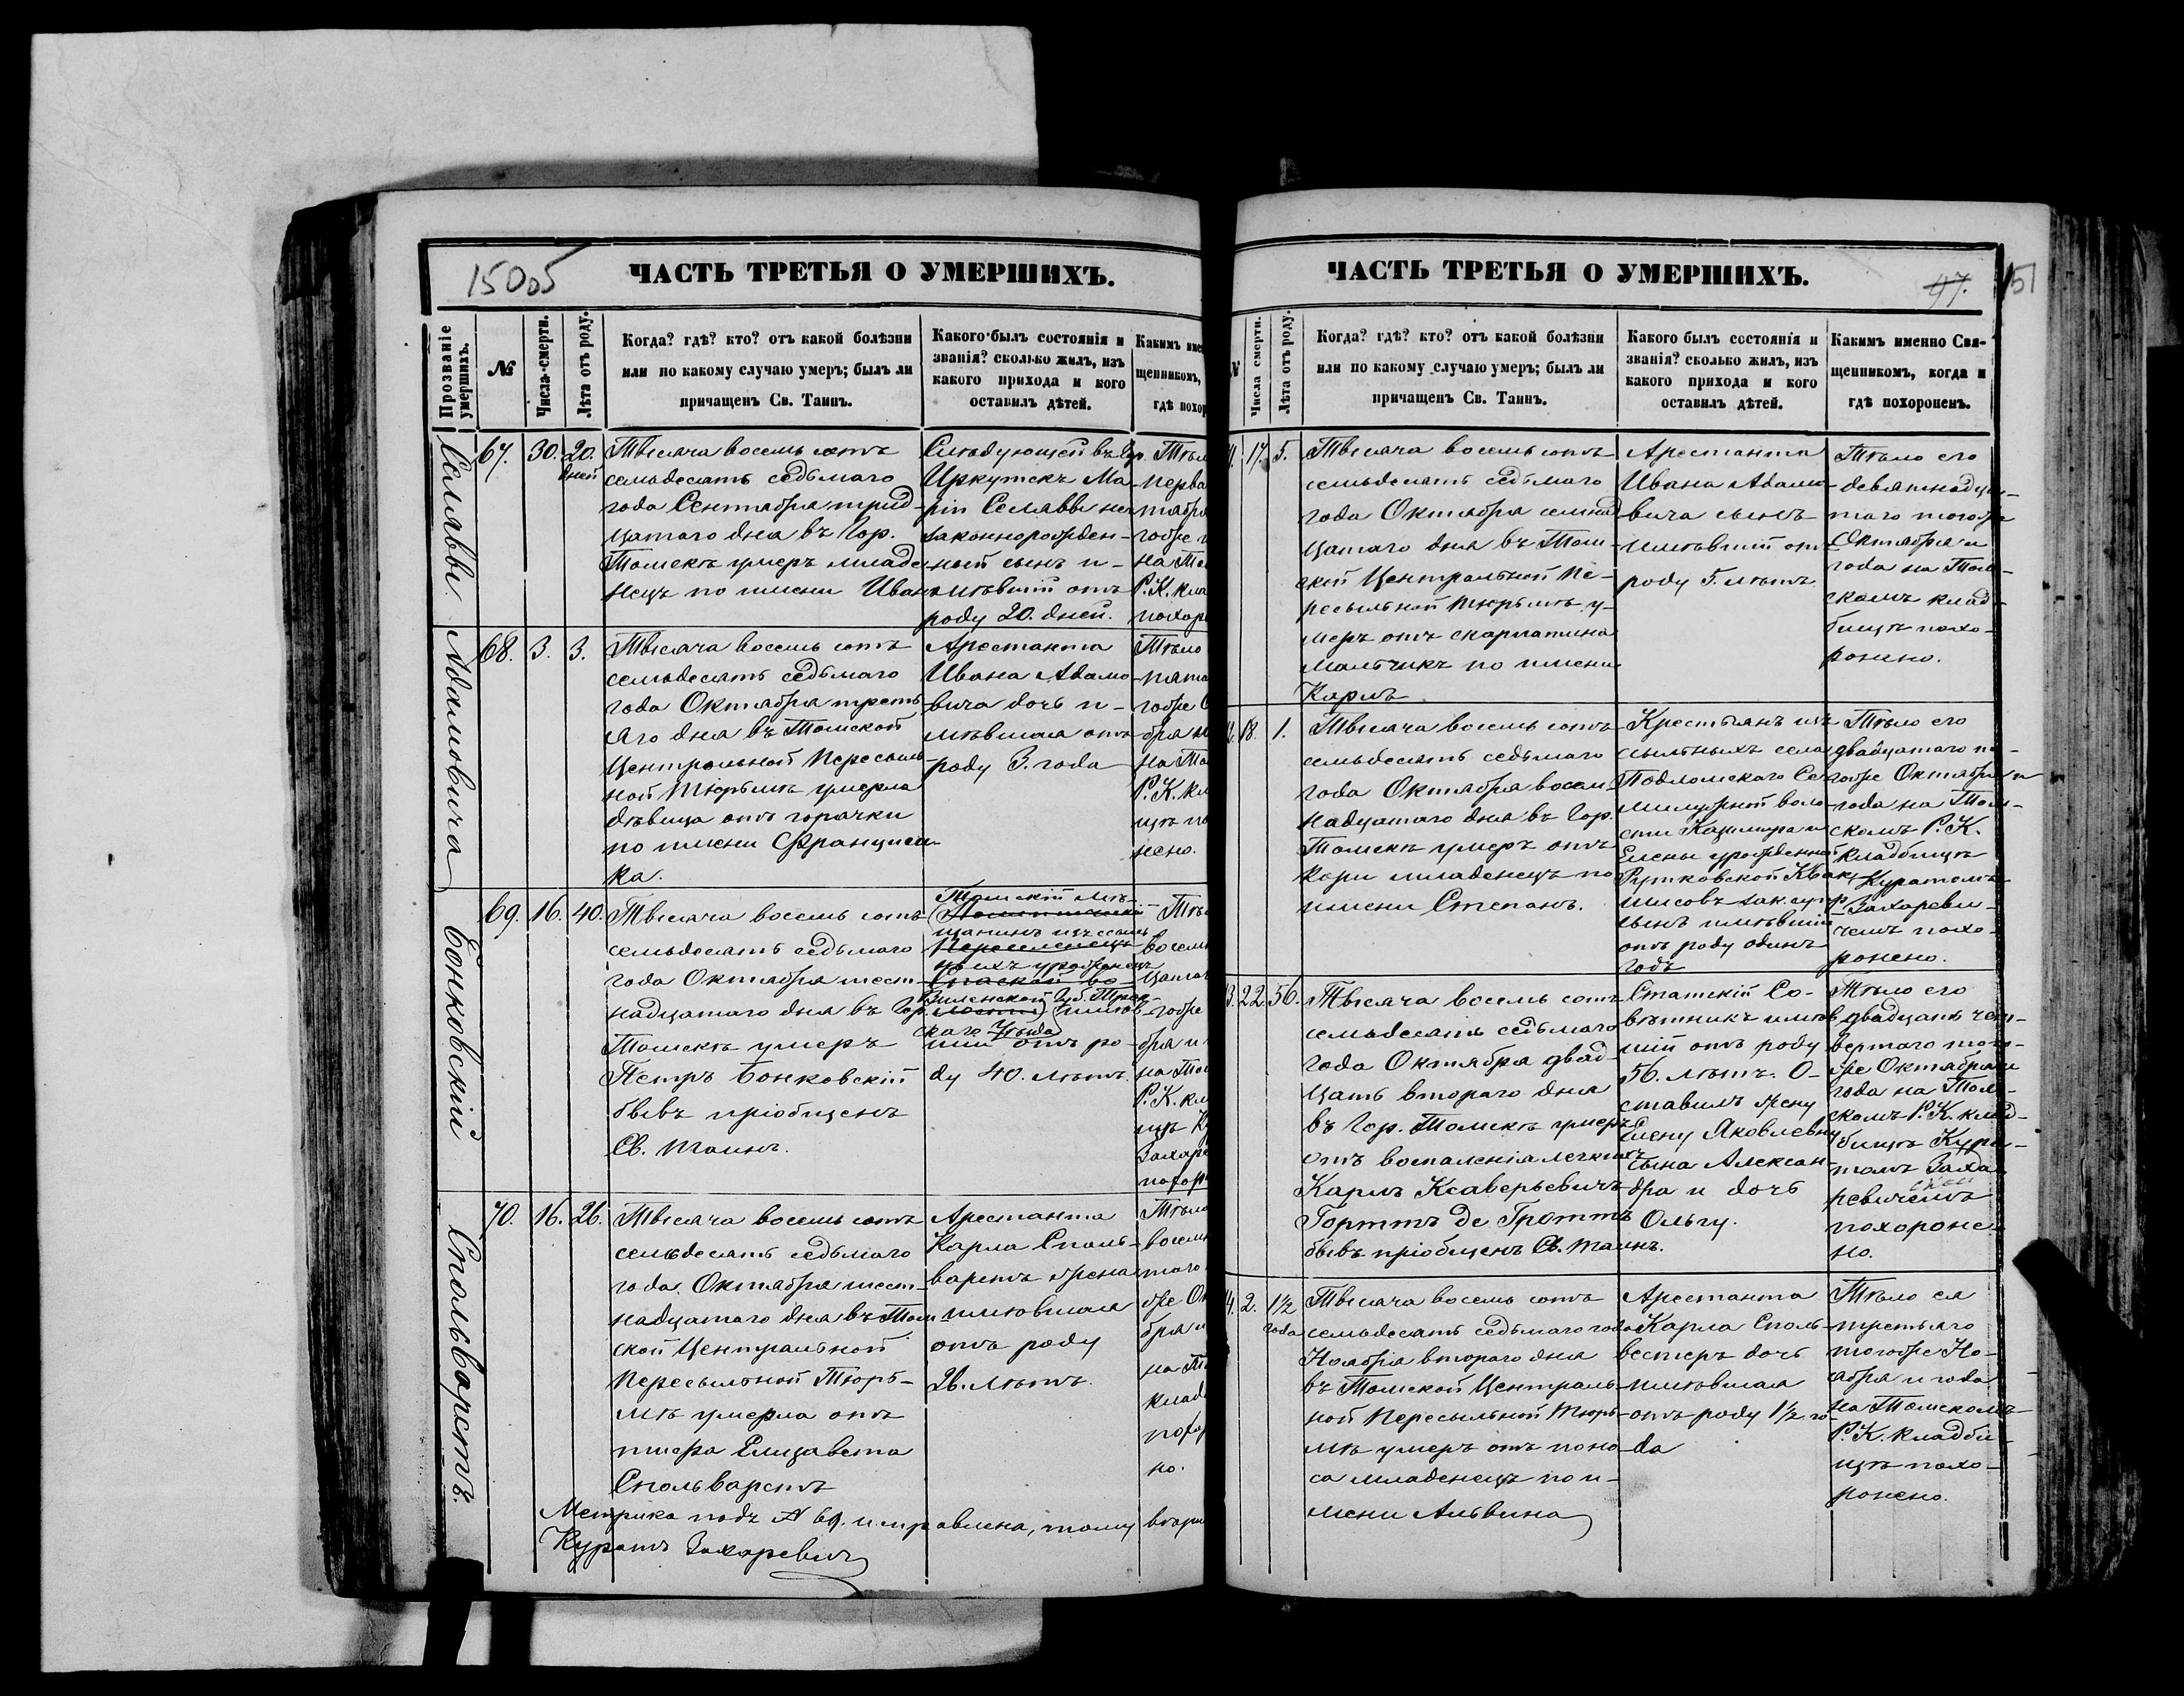 150об
ЧАСТЬ ТРЕТЬЯ О УМЕРШИХЪ.
Прозваніе умершихъ.
№
Числа смерти.
Лѣта отъ роду.
Когда? гдѣ? кто? отъ какой болѣзни
или по какому случаю умеръ; былъ ли
причащенъ Св. Таинъ.
Какого былъ состоянія и
званія? сколько жилъ, изъ
какого прихода и кого
оставилъ дѣтей.
Какимъ име
щенникомъ,
гдѣ похор
Селявве
67.
30.
20.
дней
Тысяча восемь сотъ
семьдесятъ седьмаго
года Сентября трид-
цатаго дня въ Гор.
Томскѣ умеръ младе
нецъ по имени Иванъ
Слѣдующей въ Гр.
Иркутскъ Ма-
ріи Селявве не
законнорожден-
ный сынъ и-
мѣвшій отъ
роду 20. дней.
Тѣл
перва
тября
гоже
на То
Р. К. кла
похор
Адамовича
68.
3.
3.
Тысяча восемь сотъ
семьдесятъ седьмаго
года Октября треть-
яго дня въ Томской
Центральной Пересыль
ной Тюрьмѣ умерла
дѣвица отъ горячки
по имени Францис
ка.
Арестанта
Ивана Адамо-
вича дочь и-
мѣвшая отъ
роду 3. года
Тѣло
пята
гоже О
бря
на То
Р. К. кл
щѣ по
нено.
Бонковскій
69.
16.
40.
Тысяча восемь сотъ
семьдесятъ седьмаго
года Октября шест-
надцатаго дня въ Гор.
Томскѣ умеръ
Петръ Бонковскій
бывъ пріобщенъ
Св. Таинъ.
Томскій мѣ-
щанинъ изъ ссыль
Переселенецъ
ныхъ урожденецъ
Спаской во-
Виленской Губ. Трок-
лости) имѣв-
скаго Уѣзда
шій отъ ро-
ду 40. лѣтъ.
Тѣ
восем
цата
гоже
бря и
на То
Р. К. кл
щѣ К
Захаре
похор
Спольварстъ.
70.
16.
26.
Тысяча восемь сотъ
семьдесятъ седьмаго
года Октября шест-
надцатаго дня въ Том
ской Центральной
Пересыльной Тюрь-
мѣ умерла отъ
тифа Елизавета
Спольварстъ
Арестанта
Карла Споль-
варстъ жена
имѣвшая
отъ роду
26. лѣтъ.
Тѣло
восем
таго
же Ок
бря и
на То
кладб
похор
но.
Метрика подъ № 69. исправлена, тому вѣри
Куратъ Захаревичъ
ЧАСТЬ ТРЕТЬЯ О УМЕРШИХЪ.
47.
151
№
Числа смерти.
Лѣта отъ роду.
Когда? гдѣ? кто? отъ какой болѣзни
или по какому случаю умеръ; былъ ли
причащенъ Св. Таинъ.
Какого былъ состоянія и
званія? сколько жилъ, изъ
какого прихода и кого
оставилъ дѣтей.
Какимъ именно Свя-
щенникомъ, когда и
гдѣ похороненъ.
1.
17.
5.
Тысяча восемь сотъ
семьдесятъ седьмаго
года Октября семнад
цатаго дня въ Том-
ской Центральной Пе-
ресыльной Тюрьмѣ у-
меръ отъ скарлатина
мальчикъ по имени
Карлъ
Арестанта
Ивана Адамо-
вича сынъ
имѣвшій отъ
роду 5. лѣтъ
Тѣло его
девятнадца-
таго тогоже
Октября и
года на Том-
скомъ клад-
бищѣ похо-
ронено.
2.
18.
1.
Тысяча восемь сотъ
семьдесятъ седьмаго
года Октября восем-
надцатаго дня въ Гор.
Томскѣ умеръ отъ
кори младенецъ по
имени Степанъ.
Крестьянъ изъ
ссыльныхъ села
Подломскаго Се-
милужной воло-
сти Казимира и
Елены урожденной
Рутковской
сынъ имѣвшій
отъ роду одинъ
годъ
Тѣло его
двадцатаго то-
гоже Октября и
года на Том-
скомъ Р. К.
кладбищѣ
Куратомъ
Захареви-
чемъ похо-
ронено.
3.
22.
56.
Тысяча восемь сотъ
семьдесятъ седьмаго
года Октября двад-
цать втораго дня
въ Гор. Томскѣ умеръ
отъ воспаленія легкихъ
Карлъ Ксаверьевичъ
Горттъ де Гроттъ
бывъ пріобщенъ Св. Таинъ.
Статскій Со-
вѣтникъ имѣв
шій отъ роду
56. лѣтъ. О-
ставилъ жену
Елену Яковлевну
сына Алексан-
дра и дочь
Ольгу.
Тѣло его
двадцать чет-
вертаго того-
же Октября и
года на Том-
скомъ Р. К. клад-
бищѣ Кура-
томъ Заха-
ревичемъ
похороне-
но.
4.
2.
1½
года
Тысяча восемь сотъ
семьдесятъ седьмаго года
Ноября втораго дня
въ Томской Централь-
ной Пересыльной Тюрь-
мѣ умеръ отъ поно-
са младенецъ по и-
мени Альвина
Арестанта
Карла Споль-
вестеръ дочь
имѣвшая
отъ роду 1½ го-
да
Тѣло ея
третьяго
тогоже Но-
ября и года
на Томскомъ
Р. К. кладби-
щѣ похо-
ронено.